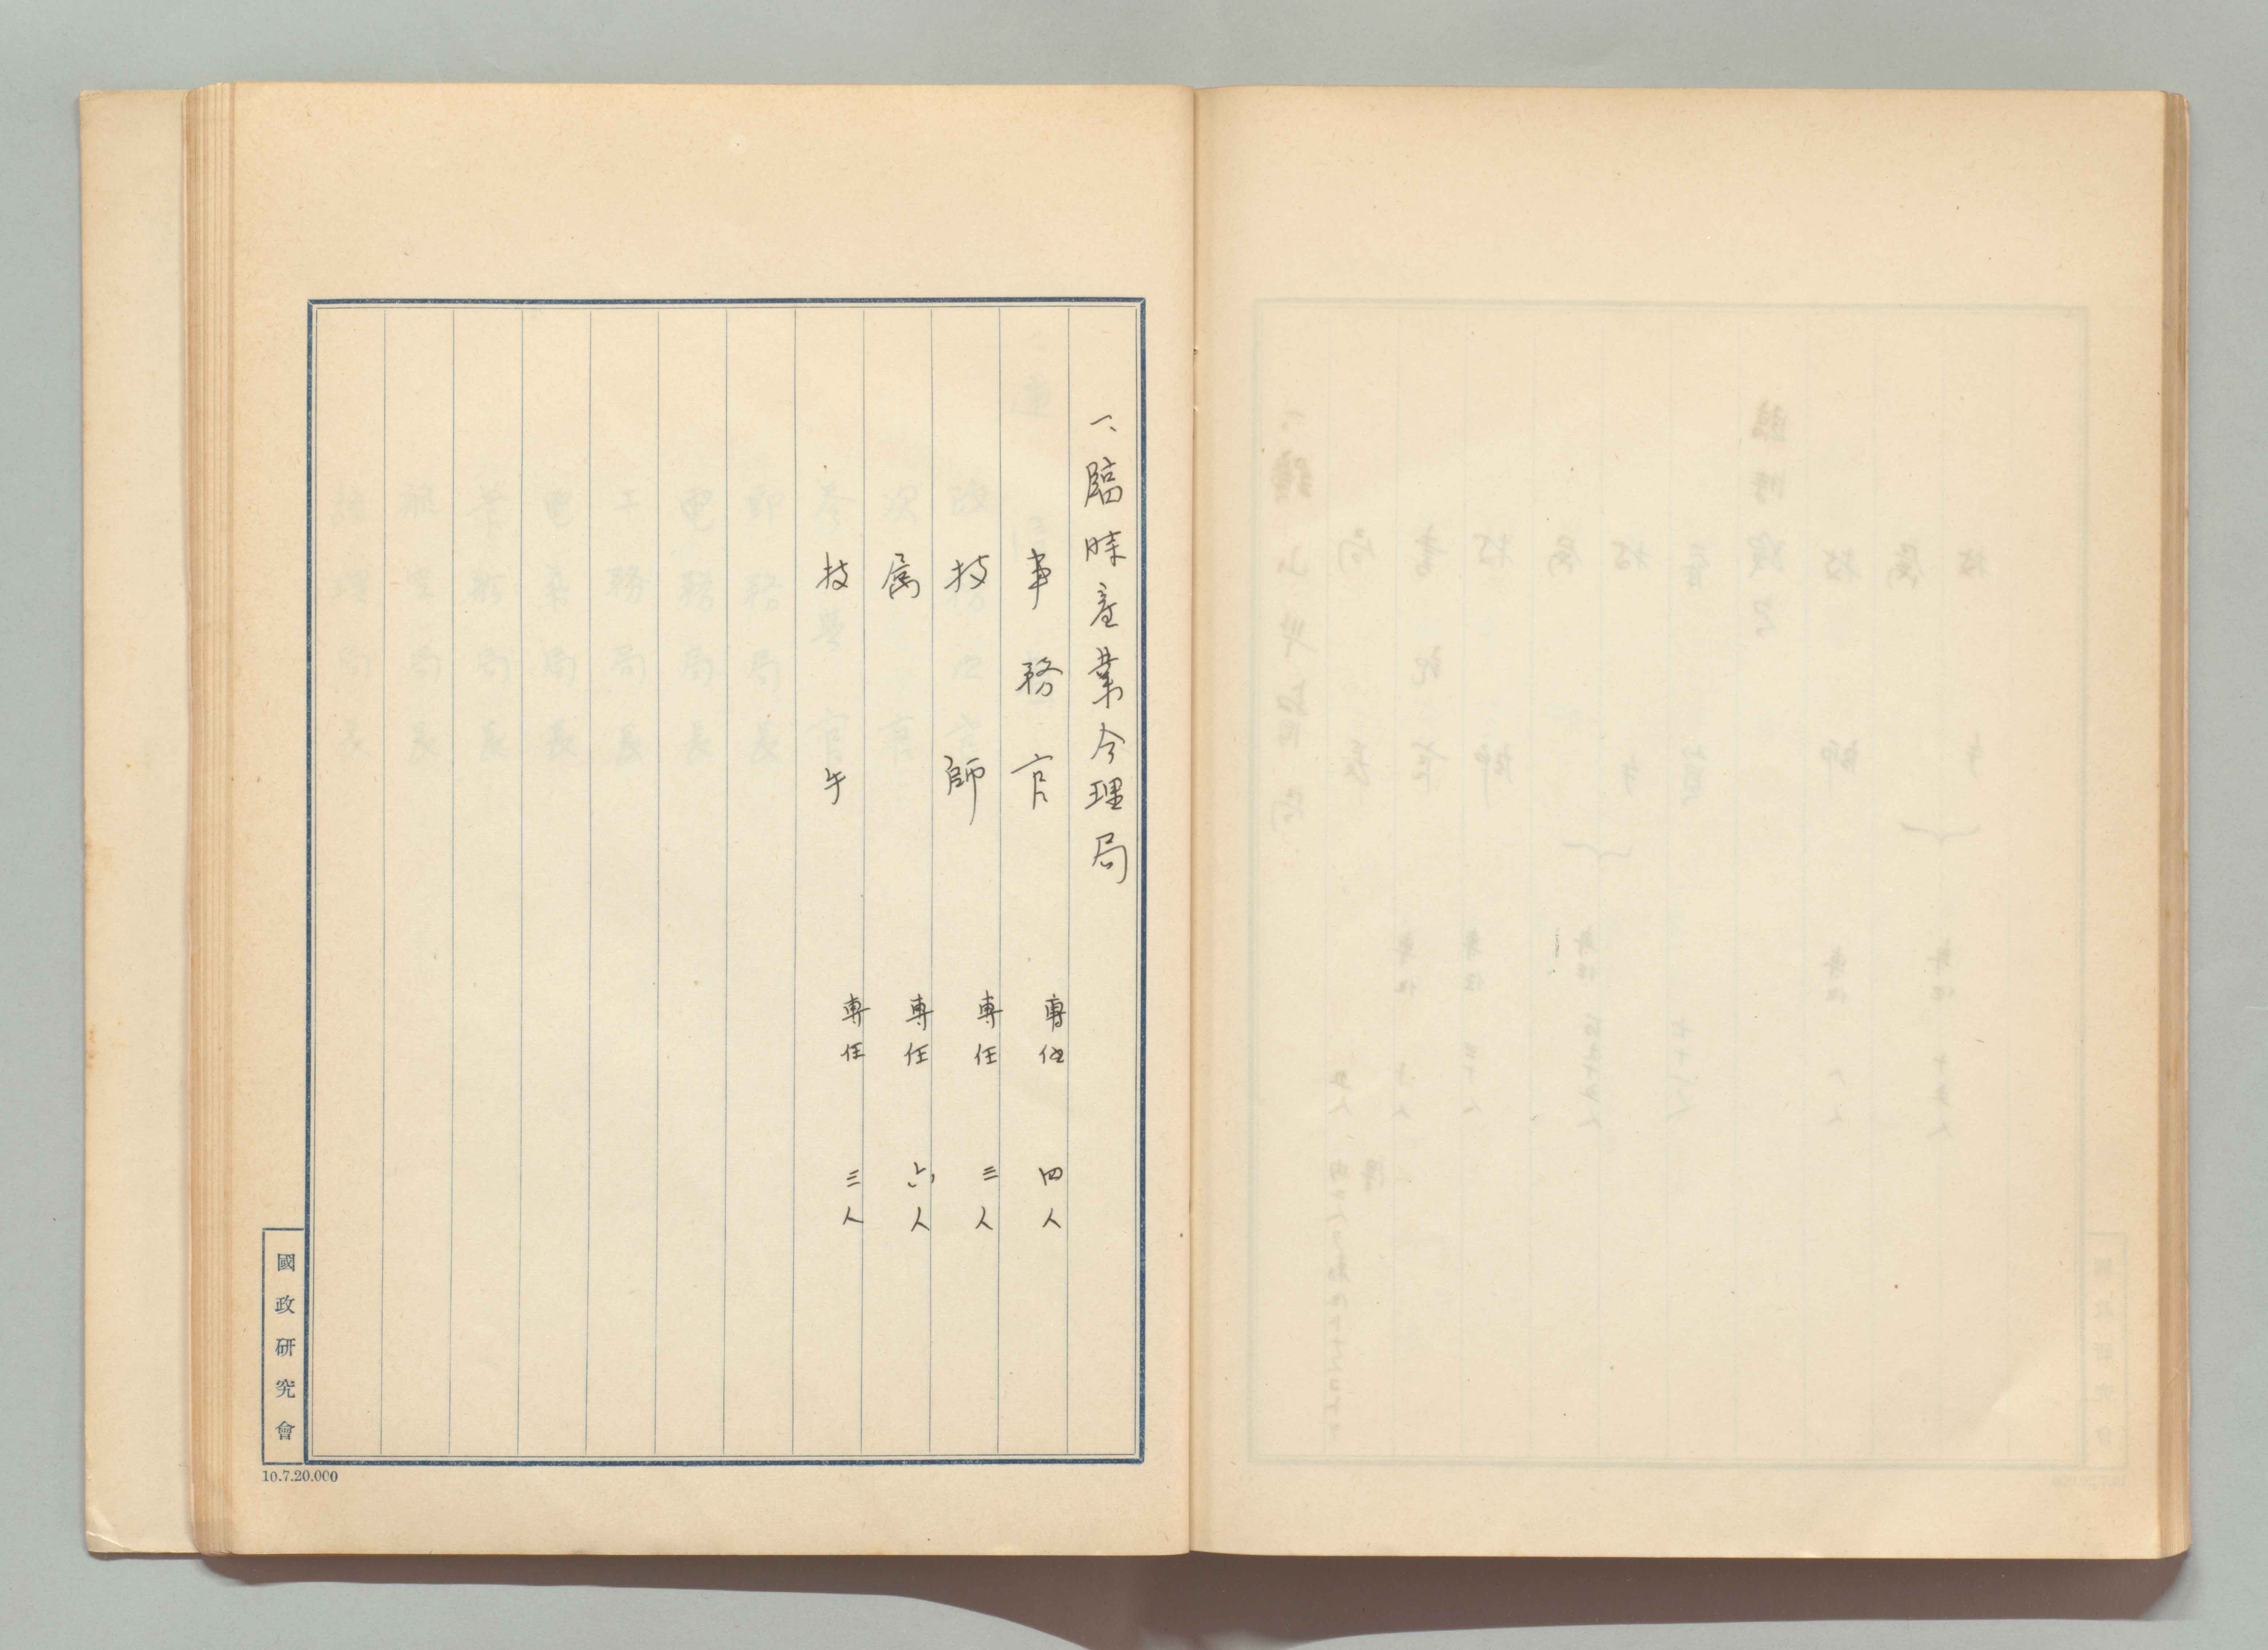 一、臨時産業合理局
事務官 専任 四人
技師 専任 三人
属 専任 六人
技手 専任 三人
國政研究會
10.7.20.000